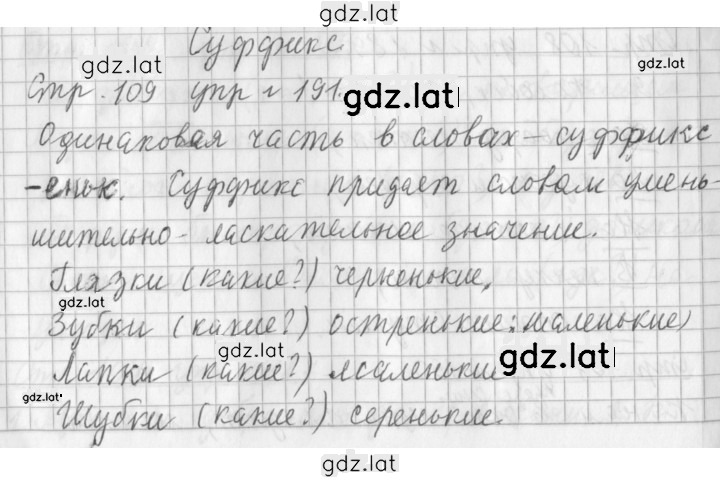 gdz.lat
Суффикс
gdz.lat
Стр. 109 упр. 191.
gdz.lat
Одинаковая часть в словах - суффикс
-еньк. Суффикс придает словам умень-
шительно-ласкательное значение.
Глазки (какие?) черненькие,
gdz.lat
Зубки (какие?) остренькие, маленькие,
gdz.lat
Лапки (какие?) маленькие
gdz.lat
gdz.lat
Шубки (какие?) серенькие.
gdz.lat